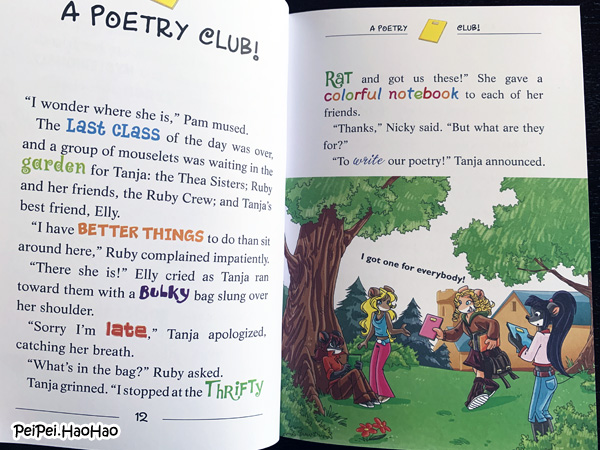 A POETRY CLUB!
"I wonder where she is," Pam mused.
The Last class of the day was over,
and a group of mouselets was waiting in the
garden for Tanja: the Thea Sisters; Ruby
and her friends, the Ruby Crew; and Tanja's
best friend, Elly.
"I have BETTER THINGS to do than sit
around here," Ruby complained impatiently.
"There she is!" Elly cried as Tanja ran
toward them with a BULKY bag slung over
her shoulder.
"Sorry I'm late," Tanja apologized,
catching her breath.
"What's in the bag?" Ruby asked.
Tanja grinned. "I stopped at the THRIFTY
12
PeiPei.HaoHao
A POETRY CLUB!
RAT and got us these!" She gave a
colorful notebook to each of her
friends.
"Thanks," Nicky said. "But what are they
for?"
"To write our poetry!" Tanja announced.
I got one for everybody!